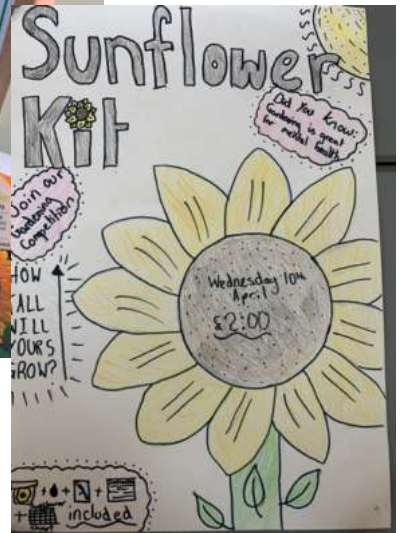 Sunflower
Kit
Did you know:
Gardening is great
for mental health
Join our
Gardening
Competition
HOW
TALL
WILL
YOURS
GROW?
Wednesday 10th
April
£2:00
+ + +
+ included